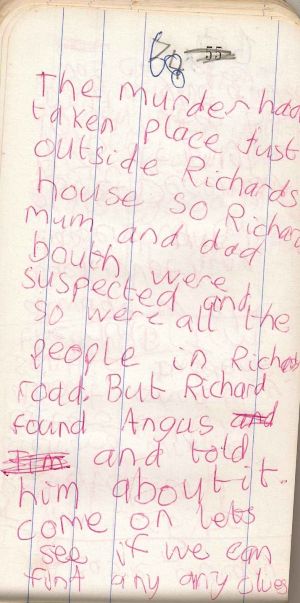 68 55
The murder had
taken place Just
outside Richards
house so Richard
mum and dad
bouth were
suspected and
so were all the
people in Richards
road. But Richard
found Angus and
and told
him about it.
come on lets
see if we can
find any any clues